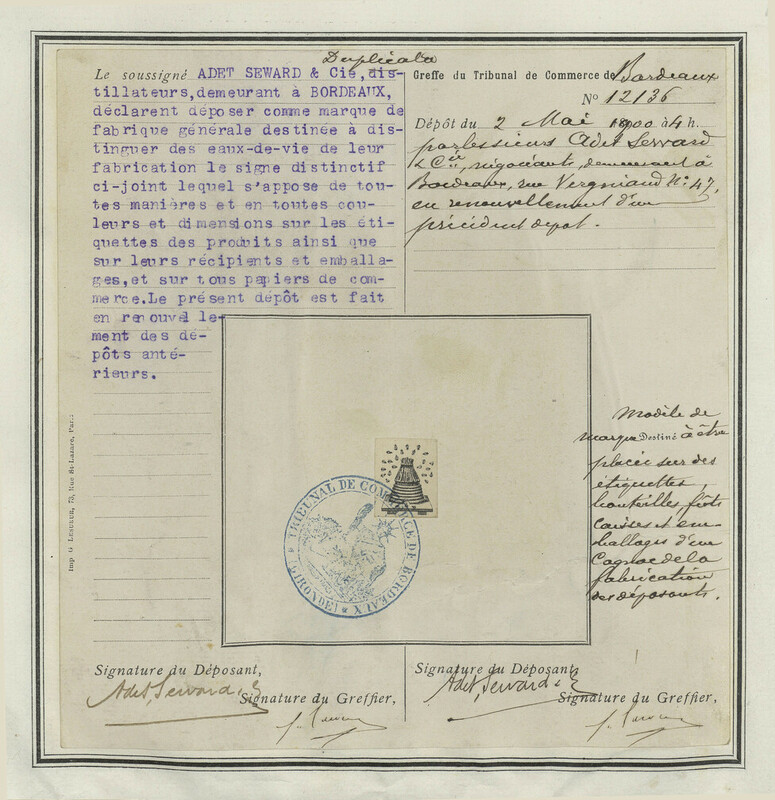 Duplicata
Le soussigné ADET SEWARD & Cie,dis-
tillateurs,demeurant à BORDEAUX,
déclarent déposer comme marque de
fabrique générale destinée à dis-
tinguer des eaux-de-vie de leur
fabrication le signe distinctif
ci-joint lequel s'appose de tou-
tes manières et en toutes cou-
leurs et dimensions sur les éti-
quettes des produits ainsi que
sur leurs récipients et emballa-
ges,et sur tous papiers de com-
merce.Le présent dépôt est fait
en renouvel le-
ment des dé-
pôts anté-
rieurs.
Greffe du Tribunal de Commerce de Bordeaux
No 12136
Dépôt du 2 Mai 1900 à 4 h.
par les sieurs Adet Seward
& Cie, négociants, demeurant à
Bordeaux, rue Vergniaud No 47,
en renouvellement d'un
précédent depot.
Modèle de
marque Destiné à être
placée sur des
étiquettes,
bouteilles, fûts
caisses et em-
ballages d'un
Cognac de la
fabrication
des déposants.
TRIBUNAL DE COMMERCE DE BORDEAUX
(GIRONDE)
Imp. G. LESUEUR, 73, Rue St-Lazare, Paris
Signature du Déposant,
Adet, Seward, &
Signature du Greffier,
Signature du Déposant,
Adet, Seward, &
Signature du Greffier,